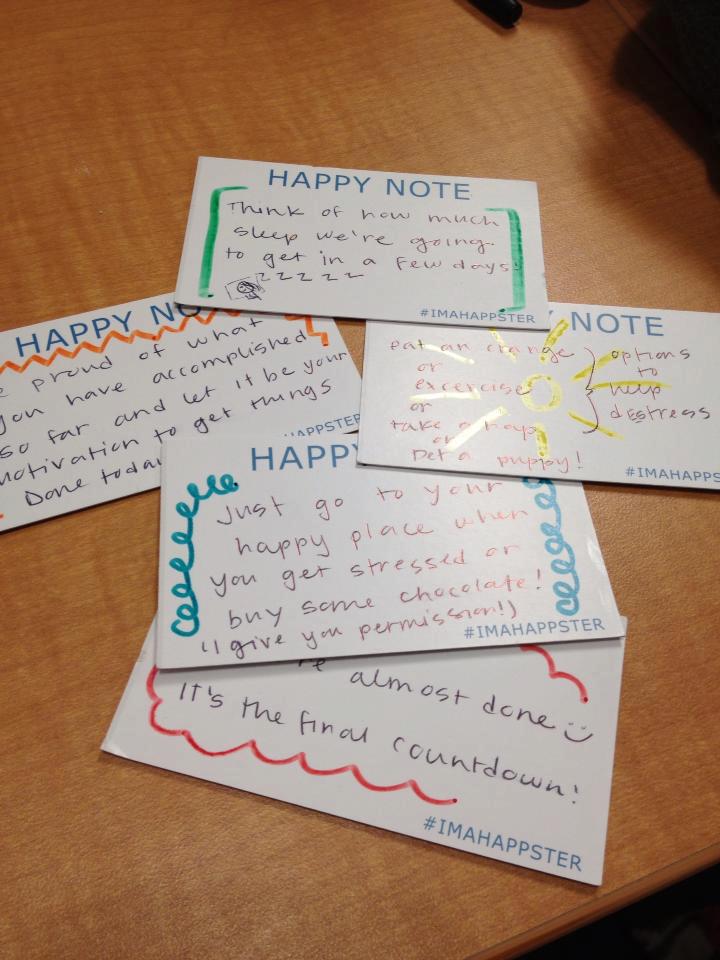 HAPPY NOTE
Think of how much
sleep we're going
to get in a few days!
z z z z z
#IMAHAPPSTER
HAPPY NO
proud of what
you have accomplished
so far and let it be your
motivation to get things
Done today
IMAHAPPSTER
NOTE
eat an orange
or
excercise
or
take a nap
or
pet a puppy!
options
to
help
destress
#IMAHAPPS
HAPPY
Just go to your
happy place when
you get stressed or
buy some chocolate!
(I give you permission!)
#IMAHAPPSTER
almost done
It's the final countdown!
#IMAHAPPSTER